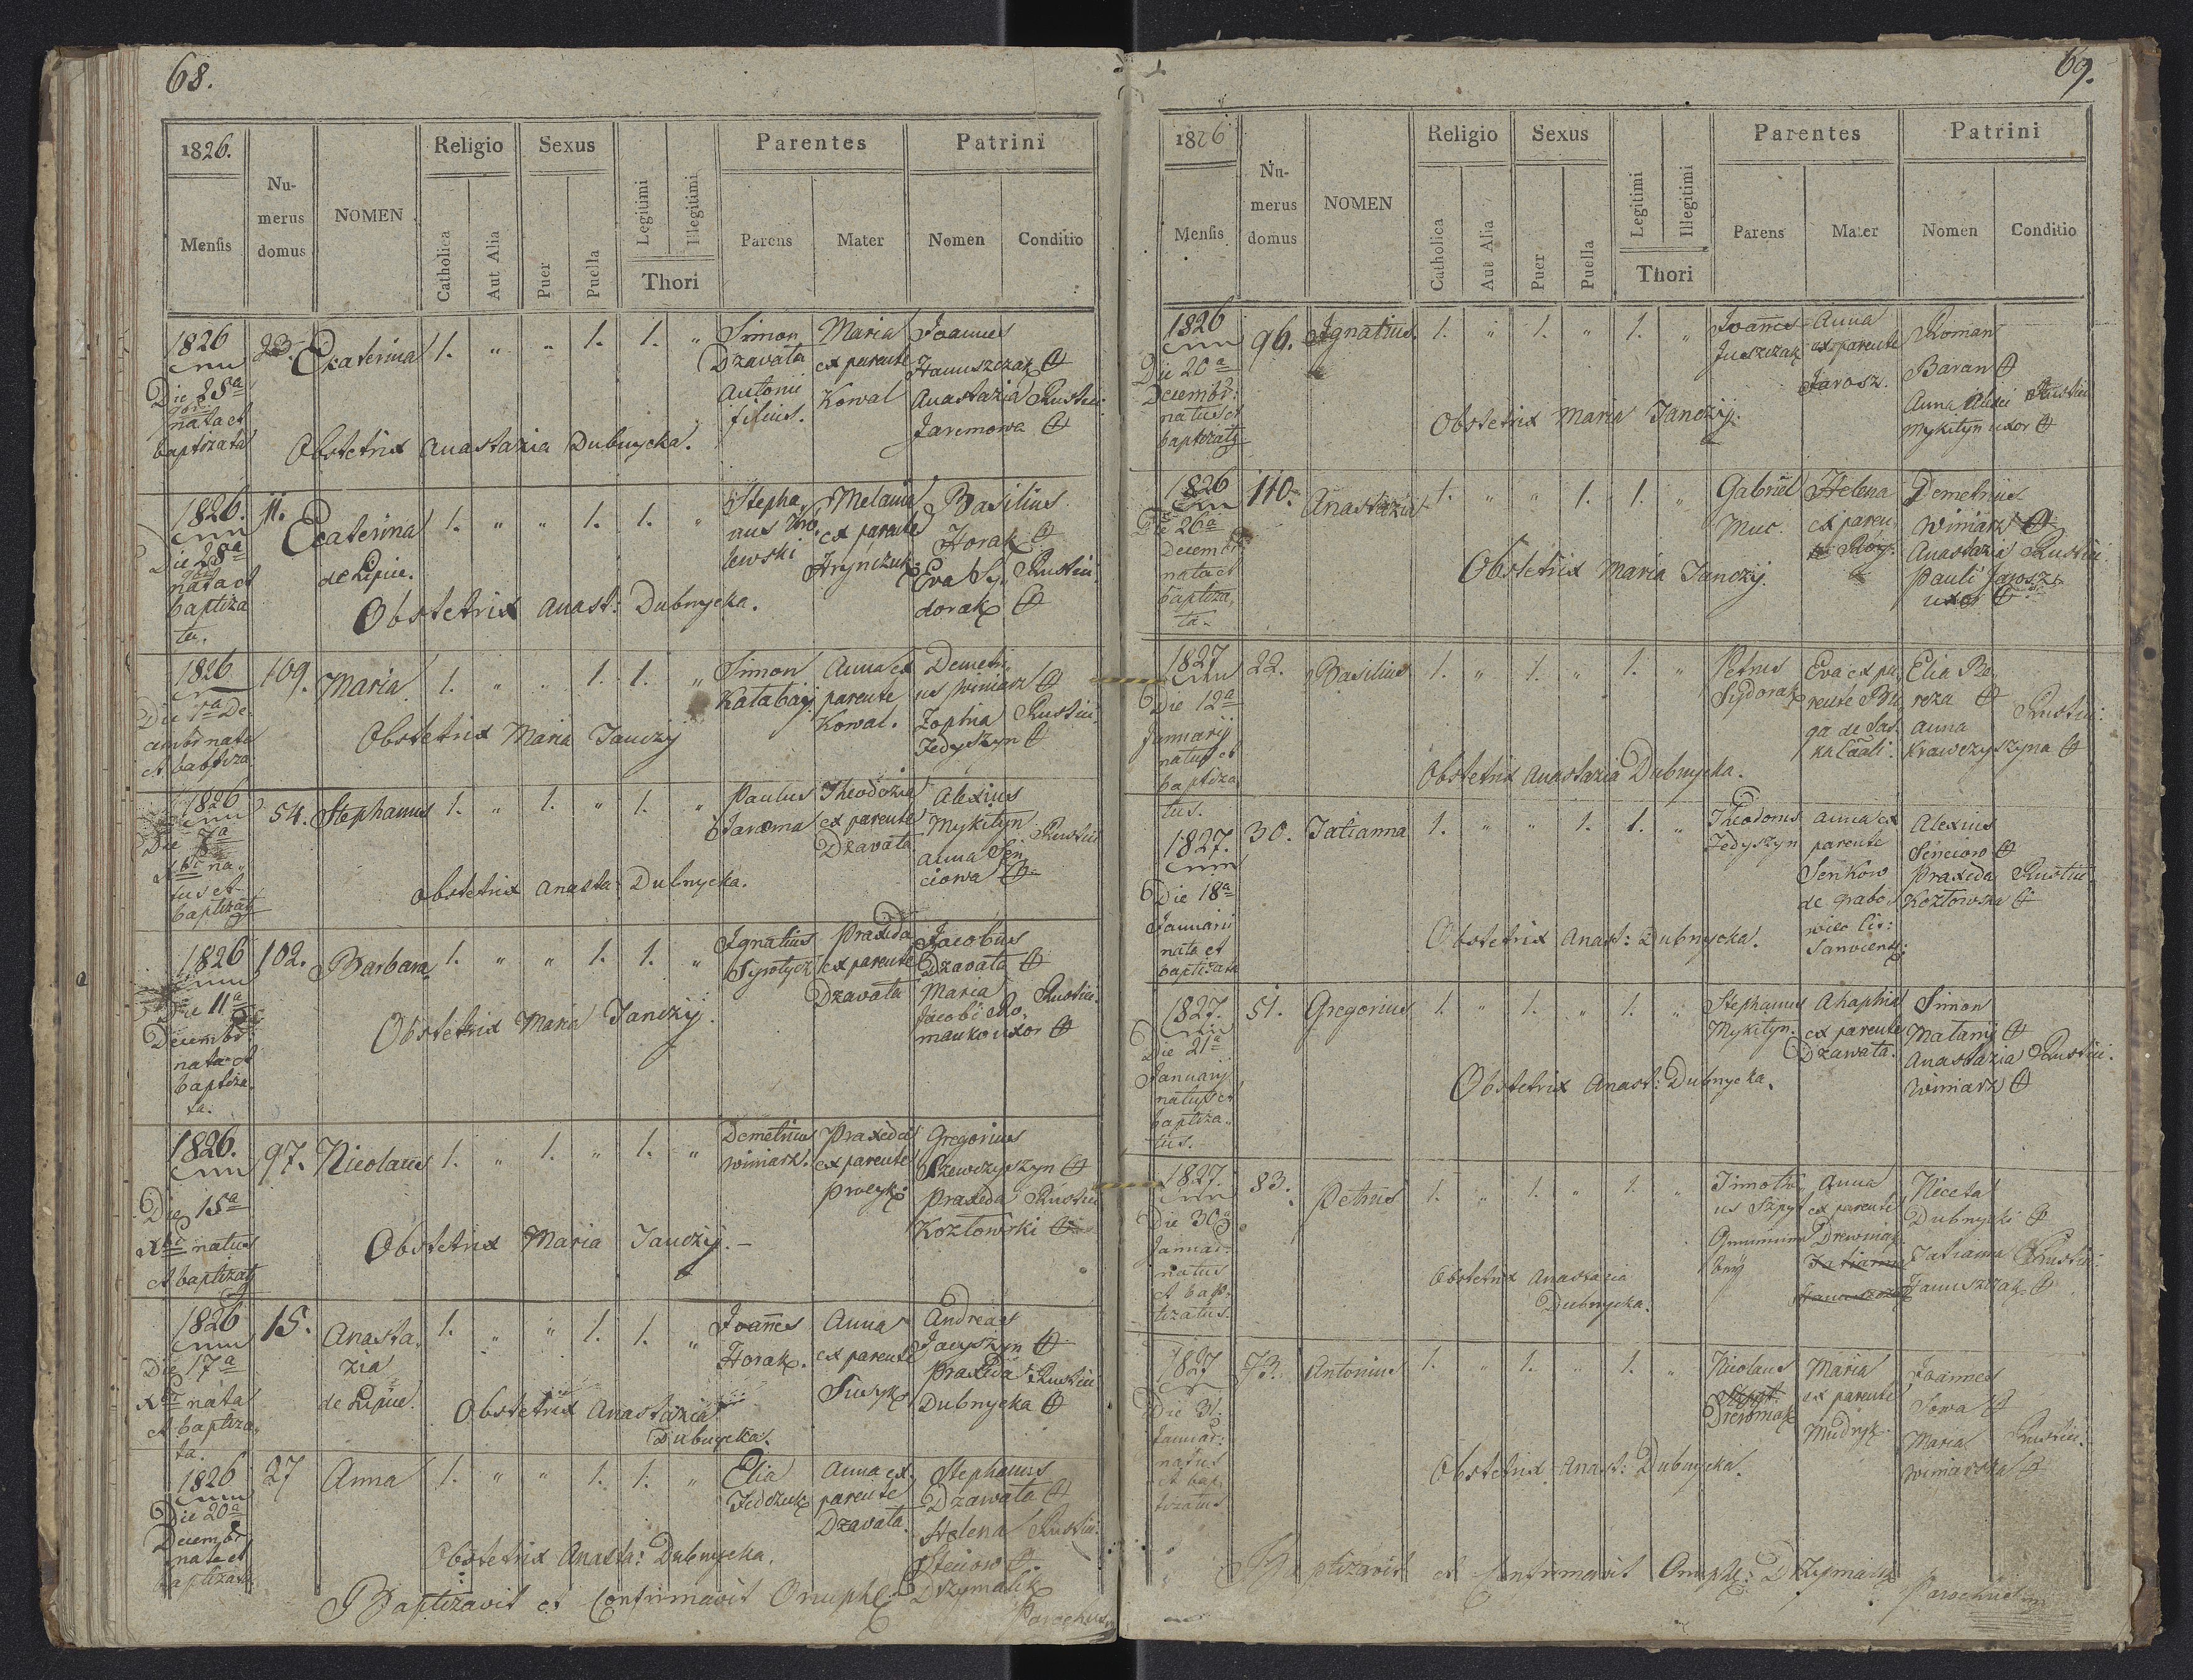 68.
1826.
Mensis
Nu-
merus
domus
NOMEN
Religio
Catholica
Aut Alia
Sexus
Puer
Puella
Legitimi
Illegitimi
Thori
Parentes
Parens
Mater
Patrini
Nomen
Conditio
1826
Die 28a
nata et
baptizata
23.
Ecaterina
1. " " 1. 1. "
Simon
Dzavata
Antonii
filius.
Maria
ex parente
Kowal
Joannes
Hanuszczak
Anastazia Rustici
Jaremowa
Obstetrix Anastazia Dubnycka.
1826.
Die 28a
nata et
baptiza
ta.
11.
Ecaterina
de Lipie.
1. " " 1. 1. "
Stepha„
nus
lewski
Melania
ex parente
Hrynczuk
Basilius
Horak
Eva Sy„ Rustici
dorak
Obstetrix Anast: Dubnycka.
1826
Die 1a De
cembr nata
et baptiza
109.
Maria
1. " " 1. 1. "
Simon
Katabay
Anna ex
parente
Kowal.
Demetri„
us Winiarz
Zophia Rustici
Fedyszyn
Obstetrix Maria Janczij
1826
Die 7a
Xbr na„
tus et
baptizat
54.
Stephanus
1. " 1. " 1. "
Paulus
Jarema
Theodozia
ex parente
Dzavata
Alexius
Mykityn
Anna Sen Rustici
ciowa
Obstetrix Anasta: Dubnycka.
1826
Die 11a
Decembr
nata et
baptiza
ta.
102.
Barbara
1. " " 1. 1. "
Ignatius
Syrotycz
Praxeda
ex parente
Dzavata
Jacobus
Dzavata
Maria Rustici
Jacobi Ro„
manko uxor
Obstetrix Maria Janczij.
1826.
Die 15a
Xbr natus
et baptizat
97.
Nicolaus
1. " 1. " 1. "
Demetrius
Winiarz.
Praxeda
ex parente
Gregorius
Szewczyszyn
Praxeda Rustici
Kozlowski
Obstetrix Maria Janczij.
1826
Die 17a
Xbr nata
et baptiza„
ta.
15.
Anasta„
zia
de Lipie.
1. " " 1. 1. "
Joannes
Horak.
Anna
ex parente
Andreas
Jacyszyn
Praxeda Rustici
Dubnycka
Obstetrix Anastazia
Dubnycka.
1826
Die 20a
Decembr
nata et
baptizata
27
Anna
1. " " 1. 1. "
Elia
Fedczuk
Anna ex
parente
Dzavata.
Stephanus
Dzawata
Helena Rustici
Stenciow
Obstetrix Anasta: Dubnycka.
Baptizavit et Confirmavit Onuph: Drzymalik
Parochus
69.
1826
Mensis
Nu-
merus
domus
NOMEN
Religio
Catholica
Aut Alia
Sexus
Puer
Puella
Legitimi
Illegitimi
Thori
Parentes
Parens
Mater
Patrini
Nomen
Conditio
1826
Die 20a
Decembr:
natus et
baptizat
96.
Ignatius.
1. " 1. " 1. "
Joannes
Juszczak
Anna
ex parente
Jarosz.
Roman
Baran
Anna Alexi Rustici
Mykityn uxor
Obstetrix Maria Janczij.
1826
Die 26a
Decembr
nata et
baptiza„
ta.
110.
Anastazia
1. " " 1. 1. "
Gabriel
Muc
Helena
ex paren„
te
Demetrius
Winiarz
Anastazia Rustici
Pauli Jarosz
uxor
Obstetrix Maria Janczij.
1827
Die 12a
Januarij
natus et
baptiza
tus.
22.
Basilius
1. " 1. " 1. "
Petrus
Sydorak
Eva ex pa„
rente Bu
ga de Sas„
ka
Elia Be„
reza
Anna Rustici
Krawczyszyna
Obstetrix Anastazia Dubnycka.
1827.
Die 18a
Januarii
nata et
baptizata
30.
Tatianna
1. " " 1. 1. "
Theodorus
Fedyszyn
Anna ex
parente
Senkow
de Grabo
wiec Cir:
Alexius
Senciow
Praxeda Rustici
Kozlowska
Obstetrix Anast: Dubnycka.
1827.
Die 21a
Januarij
natus et
baptiza„
tus.
51.
Gregorius
1. " 1. " 1. "
Stephanus
Mykityn.
Ahaphia
ex parente
Dzawata.
Simon
Matamij
Anastazia Rustici
Winiarz
Obstetrix Anast: Dubnycka.
1827.
Die 30a
Januar:
natus
et bap„
tizatus.
83.
Petrus
1. " 1. " 1. "
Timoth„
us Szpyt
Anna
ex parente
Drewniak
Niceta
Dubnycki
Tatianna Rustici
Januszczak
Obstetrix Anastazia
Dubnycka.
1827
Die 31.
Januar:
natus
et bap„
tizatus
73.
Antonius
1. " 1. " 1. "
Nicolaus
Drewniak
Maria
ex parente
Mudryk
Joannes
Sowa
Maria Rustici
Winiarska
Obstetrix Anast: Dubnycka.
Baptizavit et Confirmavit Onuph: Drzymalik
Parochus